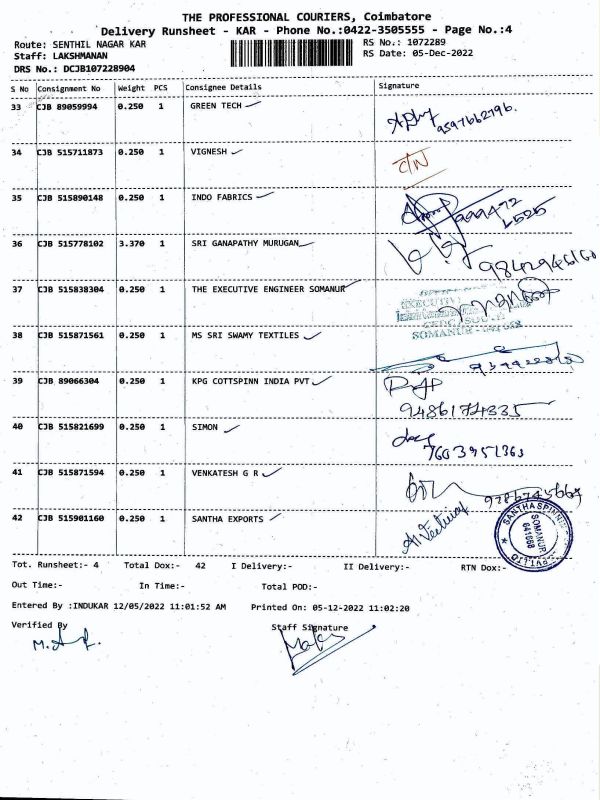 THE PROFESSIONAL COURIERS, Coimbatore
Delivery Runsheet - KAR - Phone No.:0422-3505555 - Page No.:4
Route: SENTHIL NAGAR KAR
RS No.: 1072289
Staff: LAKSHMANAN
RS Date: 05-Dec-2022
DRS No.: DCJB107228904
S No Consignment No Weight PCS Consignee Details Signature
33 CJB 89059994 0.250 1 GREEN TECH
9597662796.
34 CJB 515711873 0.250 1 VIGNESH C/N
35 CJB 515890148 0.250 1 INDO FABRICS
36 CJB 515778102 3.370 1 SRI GANAPATHY MURUGAN
9842946160
37 CJB 515838304 0.250 1 THE EXECUTIVE ENGINEER SOMANUR
EXECUTIVE
SOMANUR
38 CJB 515871561 0.250 1 MS SRI SWAMY TEXTILES
39 CJB 89066304 0.250 1 KPG COTTSPINN INDIA PVT
9486174335
40 CJB 515821699 0.250 1 SIMON
7603951363
41 CJB 515871594 0.250 1 VENKATESH G R
9286745667
42 CJB 515901160 0.250 1 SANTHA EXPORTS
SOMANUR
641668
Tot. Runsheet:- 4 Total Dox:- 42 I Delivery:- II Delivery:- RTN Dox:-
Out Time:- In Time:- Total POD:-
Entered By :INDUKAR 12/05/2022 11:01:52 AM Printed On: 05-12-2022 11:02:20
Verified By Staff Signature